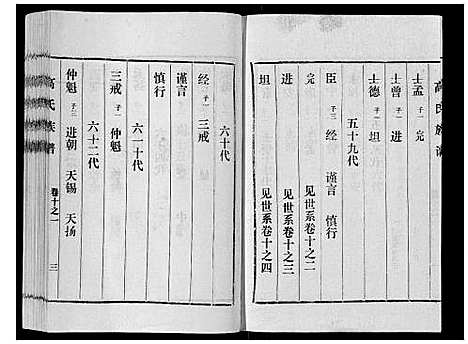 高氏族谱
士孟 子一 完
士曾 子一 进
士德 子一 坦
五十九代
臣 子三 经 谨言 慎行
完 见世系卷十之二
进 见世系卷十之三
坦 见世系卷十之四
六十代
经 子一 三戒
谨言
慎行
六十一代
三戒 子一 仲魁
六十二代
仲魁 子三 进朝 天锡 天扬
高氏族谱 卷十之一 三